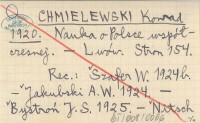 CHMIELEWSKI Konrad
1920. Nauka o Polsce współ-
czesnej. — Lwów. Stron 154.
Rec.: "Szafer W. 1924b.
— "Jakubski A.W. 1924. —
"Bystroń J.S. 1925. — "Nitsch